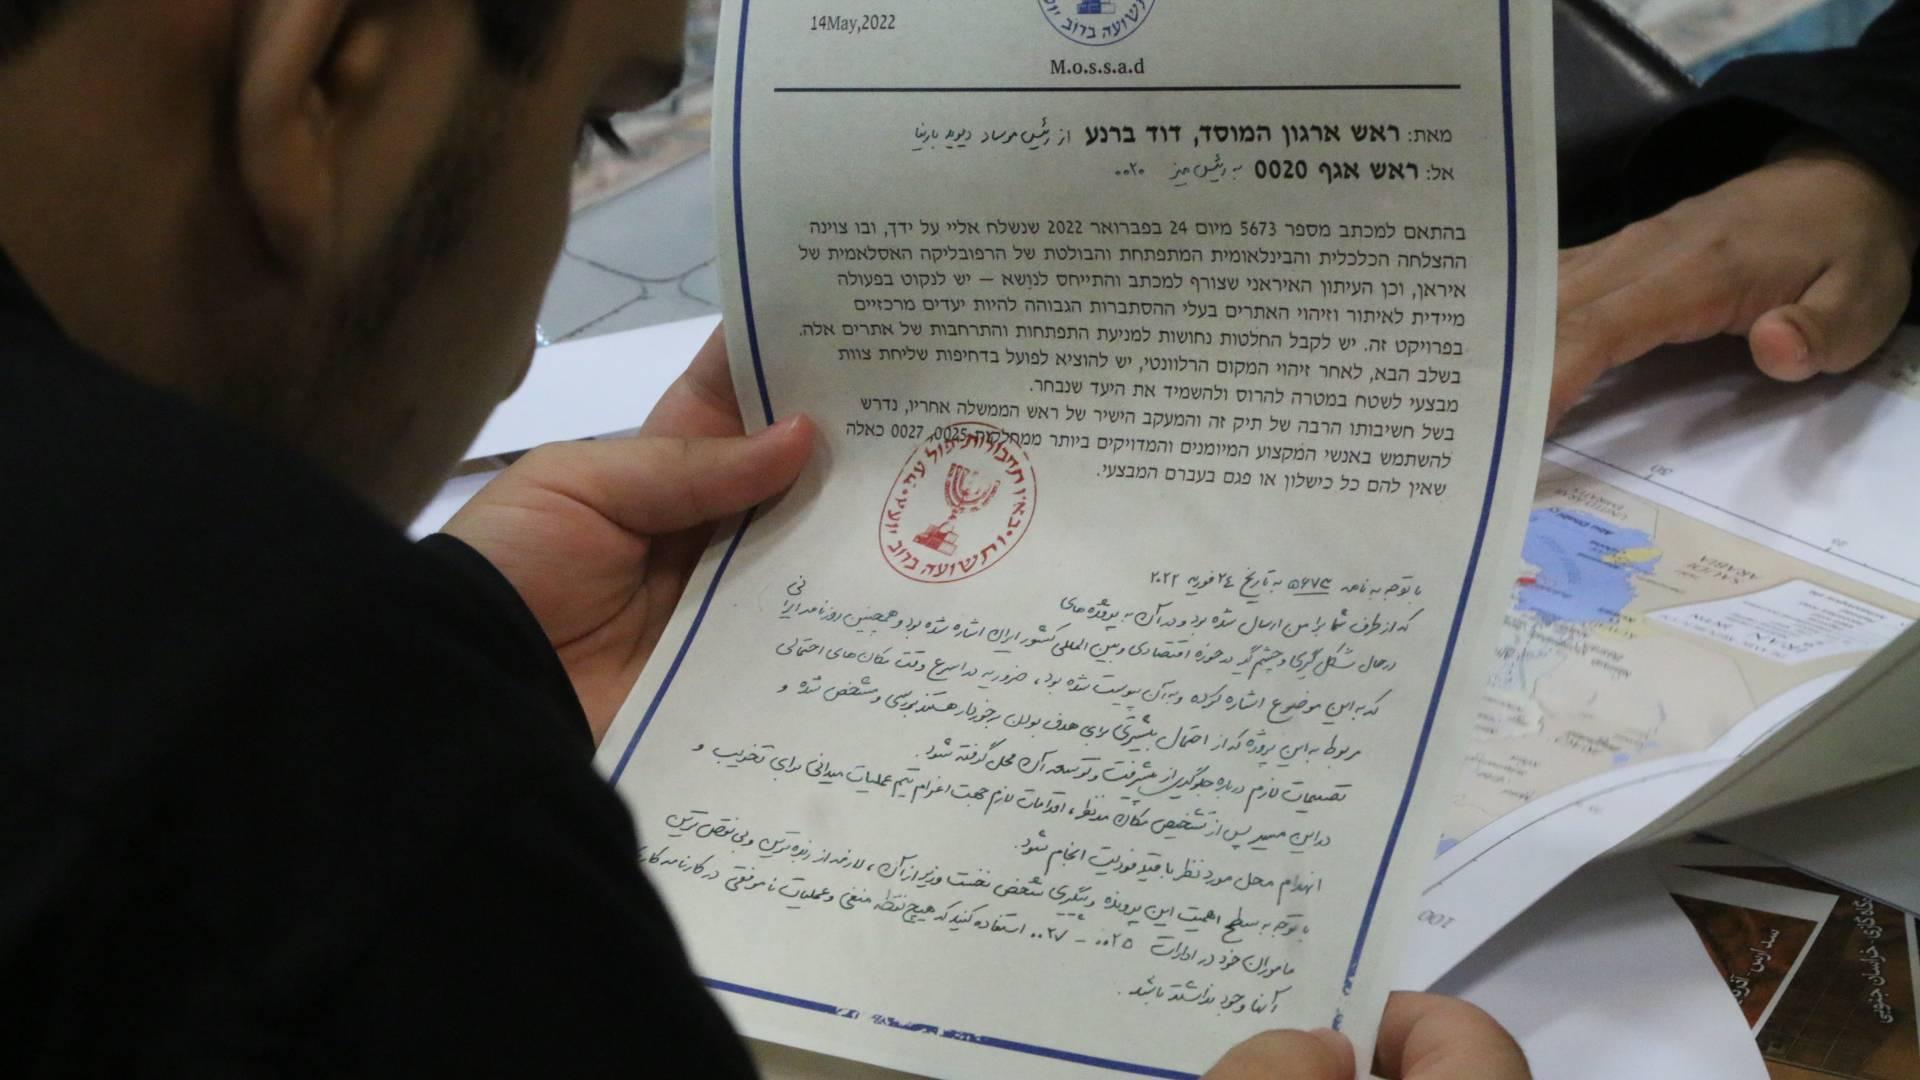 14May,2022
תשועה ברוב יו
M.o.s.s.a.d
מאת: ראש ארגון המוסד, דוד ברנע از رئیس موساد دیوید بارنیا
אל: ראש אגף 0020 به رئیس میز ۰۰۲۰
בהתאם למכתב מספר 5673 מיום 24 בפברואר 2022 שנשלח אליי על ידך, ובו צוינה
ההצלחה הכלכלית והבינלאומית המתפתחת והבולטת של הרפובליקה האסלאמית של
איראן, וכן העיתון האיראני שצורף למכתב והתייחס לנושא – יש לנקוט בפעולה
מיידית לאיתור וזיהוי האתרים בעלי ההסתברות הגבוהה להיות יעדים מרכזיים
בפרויקט זה. יש לקבל החלטות נחושות למניעת התפתחות והתרחבות של אתרים אלה.
בשלב הבא, לאחר זיהוי המקום הרלוונטי, יש להוציא לפועל בדחיפות שליחת צוות
מבצעי לשטח במטרה להרוס ולהשמיד את היעד שנבחר.
בשל חשיבותו הרבה של תיק זה והמעקב הישיר של ראש הממשלה אחריו, נדרש
להשתמש באנשי המקצוע המיומנים והמדויקים ביותר ממחלקות 0025, 0027 כאלה
שאין להם כל כישלון או פגם בעברם המבצעי.
באין תחבולות יפול עם ותשועה ברוב יועץ
با توجه به نامه ۵۶۷۳ به تاریخ ۲۴ فوریه ۲۰۲۲
که از طرف شما برا من ارسال شده بود و در آن به پروژه های
در حال شکل گیری و چشم گیر در حوزه اقتصادی و بین المللی کشور ایران اشاره شده بود و همچنین روزنامه ایرانی
که به این موضوع اشاره کرده و به آن پیوست شده بود، ضروریه در اسرع وقت مکان های احتمالی
مربوط به این پروژه که از احتمال بیشتری برای هدف بودن برخوردار هستند بررسی و مشخص شده و
تصمیمات لازم درباره جلوگیری از پیشرفت و توسعه آن محل گرفته شود.
در این مسیر پس از تشخیص مکان مدنظر، اقدامات لازم جهت اعزام تیم عملیات میدانی برای تخریب و
انهدام محل مورد نظر با قید فوریت انجام شود.
با توجه به سطح اهمیت این پرونده و پیگیری شخص نخست وزیر از آن، لازمه از زبده ترین و بی نقص ترین
ماموران خود در ادارات ۰۰۲۵ - ۰۰۲۷ استفاده کنید که هیچ نقطه منفی و عملیات ناموفقی در کارنامه
آنها وجود نداشته باشد.
SAUDI
ARABIA
IRAN
100
خراسان جنوبی